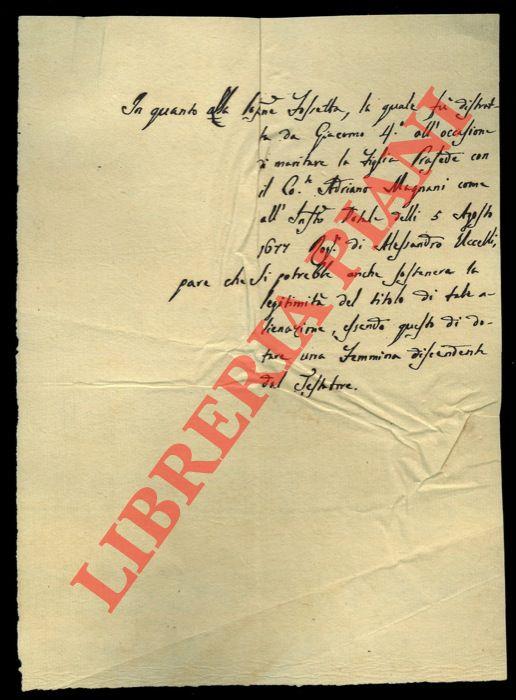 In quanto alla Fossetta, la quale fù distrat-
ta da Giacomo 4.° all'occasione
di maritare la Figlia Prasede con
il Co:te Adriano Magnani come
all'Instro Dotale delli 5 Agosto
1677 Rog.o di Alessandro Uccelli,
pare che si potrebbe anche sostenere la
legitimità del titolo di tale a-
lienazione, essendo questo di do-
tare una Femmina discendente
dal Testatore.
LIBRERIA PIANI